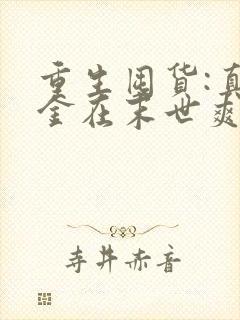 重生囤货:真
金在末世爽
寺井赤音